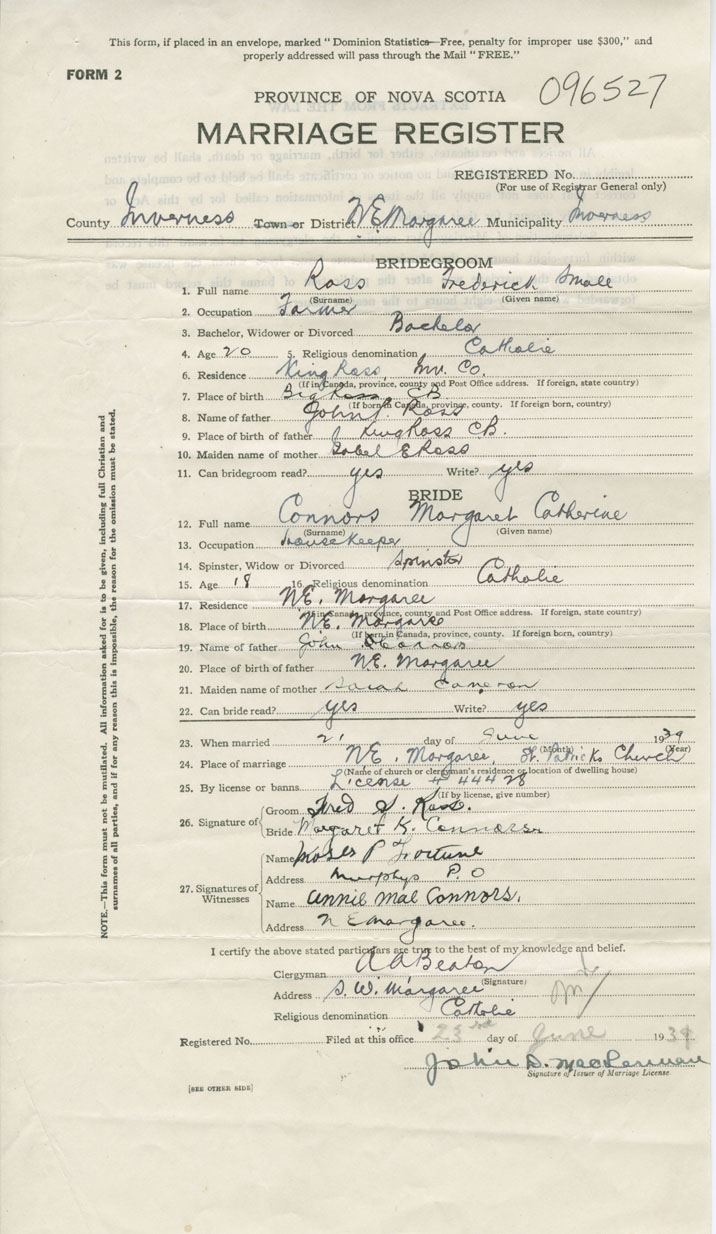 This form, if placed in an envelope, marked "Dominion Statistics—Free, penalty for improper use $300," and
properly addressed will pass through the Mail "FREE."
FORM 2
096527
PROVINCE OF NOVA SCOTIA
MARRIAGE REGISTER
REGISTERED No.
(For use of Registrar General only)
County Inverness Town or District N.E. Margaree Municipality Inverness
BRIDEGROOM
1. Full name Ross Frederick Smale
(Surname) (Given name)
2. Occupation Farmer
3. Bachelor, Widower or Divorced Bachelor
4. Age 20 5. Religious denomination Catholic
6. Residence King Ross, Inv. Co.
(If in Canada, province, county and Post Office address. If foreign, state country)
7. Place of birth Big Ross CB
(If born in Canada, province, county. If foreign, country)
8. Name of father John J Ross
9. Place of birth of father King Ross CB.
10. Maiden name of mother E Ross
11. Can bridegroom read? yes Write? yes
BRIDE
12. Full name Connors Margaret Catherine
(Surname) (Given name)
13. Occupation Housekeeper
14. Spinster, Widow or Divorced Spinster
15. Age 18 16. Religious denomination Catholic
17. Residence N.E. Margaree
(If in Canada, province, county and Post Office address. If foreign, state country)
18. Place of birth N.E. Margaree
(If born in Canada, province, county. If foreign, country)
19. Name of father John Connors
20. Place of birth of father N.E. Margaree
21. Maiden name of mother Sarah Cameron
22. Can bride read? yes Write? yes
23. When married 21 day of June 1939
(Month) (Year)
24. Place of marriage N.E. Margaree, St. Patricks Church
(Name of church or clergyman's residence or location of dwelling house)
25. By license or banns License # 44428
(If by license, give number)
26. Signature of Groom Fred S. Ross.
Bride Margaret K. Connors
27. Signatures of Witnesses Name Moses P Fortune
Address Murphys P.O
Name Annie Mae Connors.
Address N E Margaree.
I certify the above stated particulars are true to the best of my knowledge and belief.
Clergyman A A Beaton
(Signature)
Address S. W. Margaree
Religious denomination Catholic
Registered No. Filed at this office 23rd day of June 1939
John D. MacLennan
Signature of Issuer of Marriage License
[SEE OTHER SIDE]
NOTE.—This form must not be mutilated. All information asked for is to be given, including full Christian and
surnames of all parties, and if for any reason this is impossible, the reason for the omission must be stated.